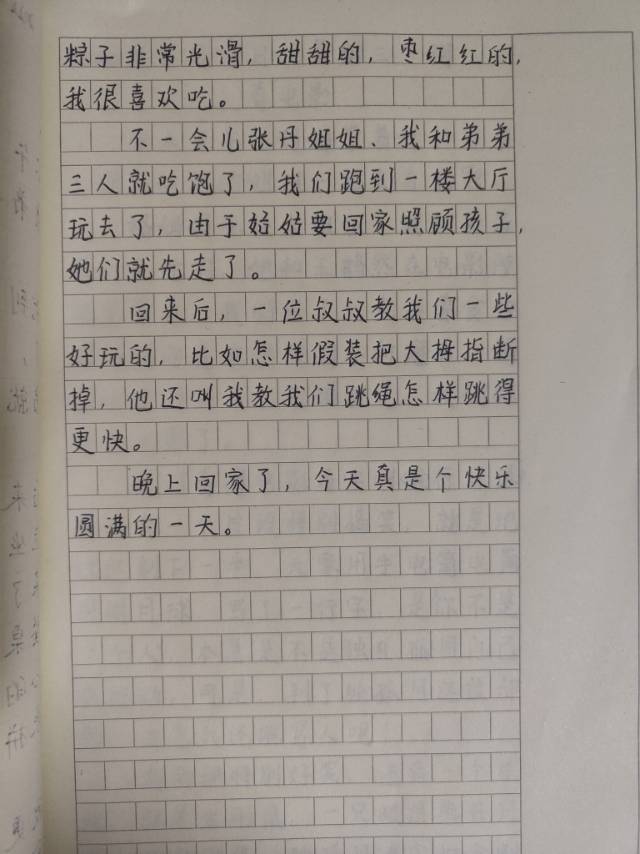 粽子非常光滑，甜甜的，枣红红的，
我很喜欢吃。
不一会儿张丹姐姐、我和弟弟
三人就吃饱了，我们跑到一楼大厅
玩去了，由于姑姑要回家照顾孩子，
她们就先走了。
回来后，一位叔叔教我们一些
好玩的，比如怎样假装把大拇指断
掉，他还叫我教我们跳绳怎样跳得
更快。
晚上回家了，今天真是个快乐
圆满的一天。